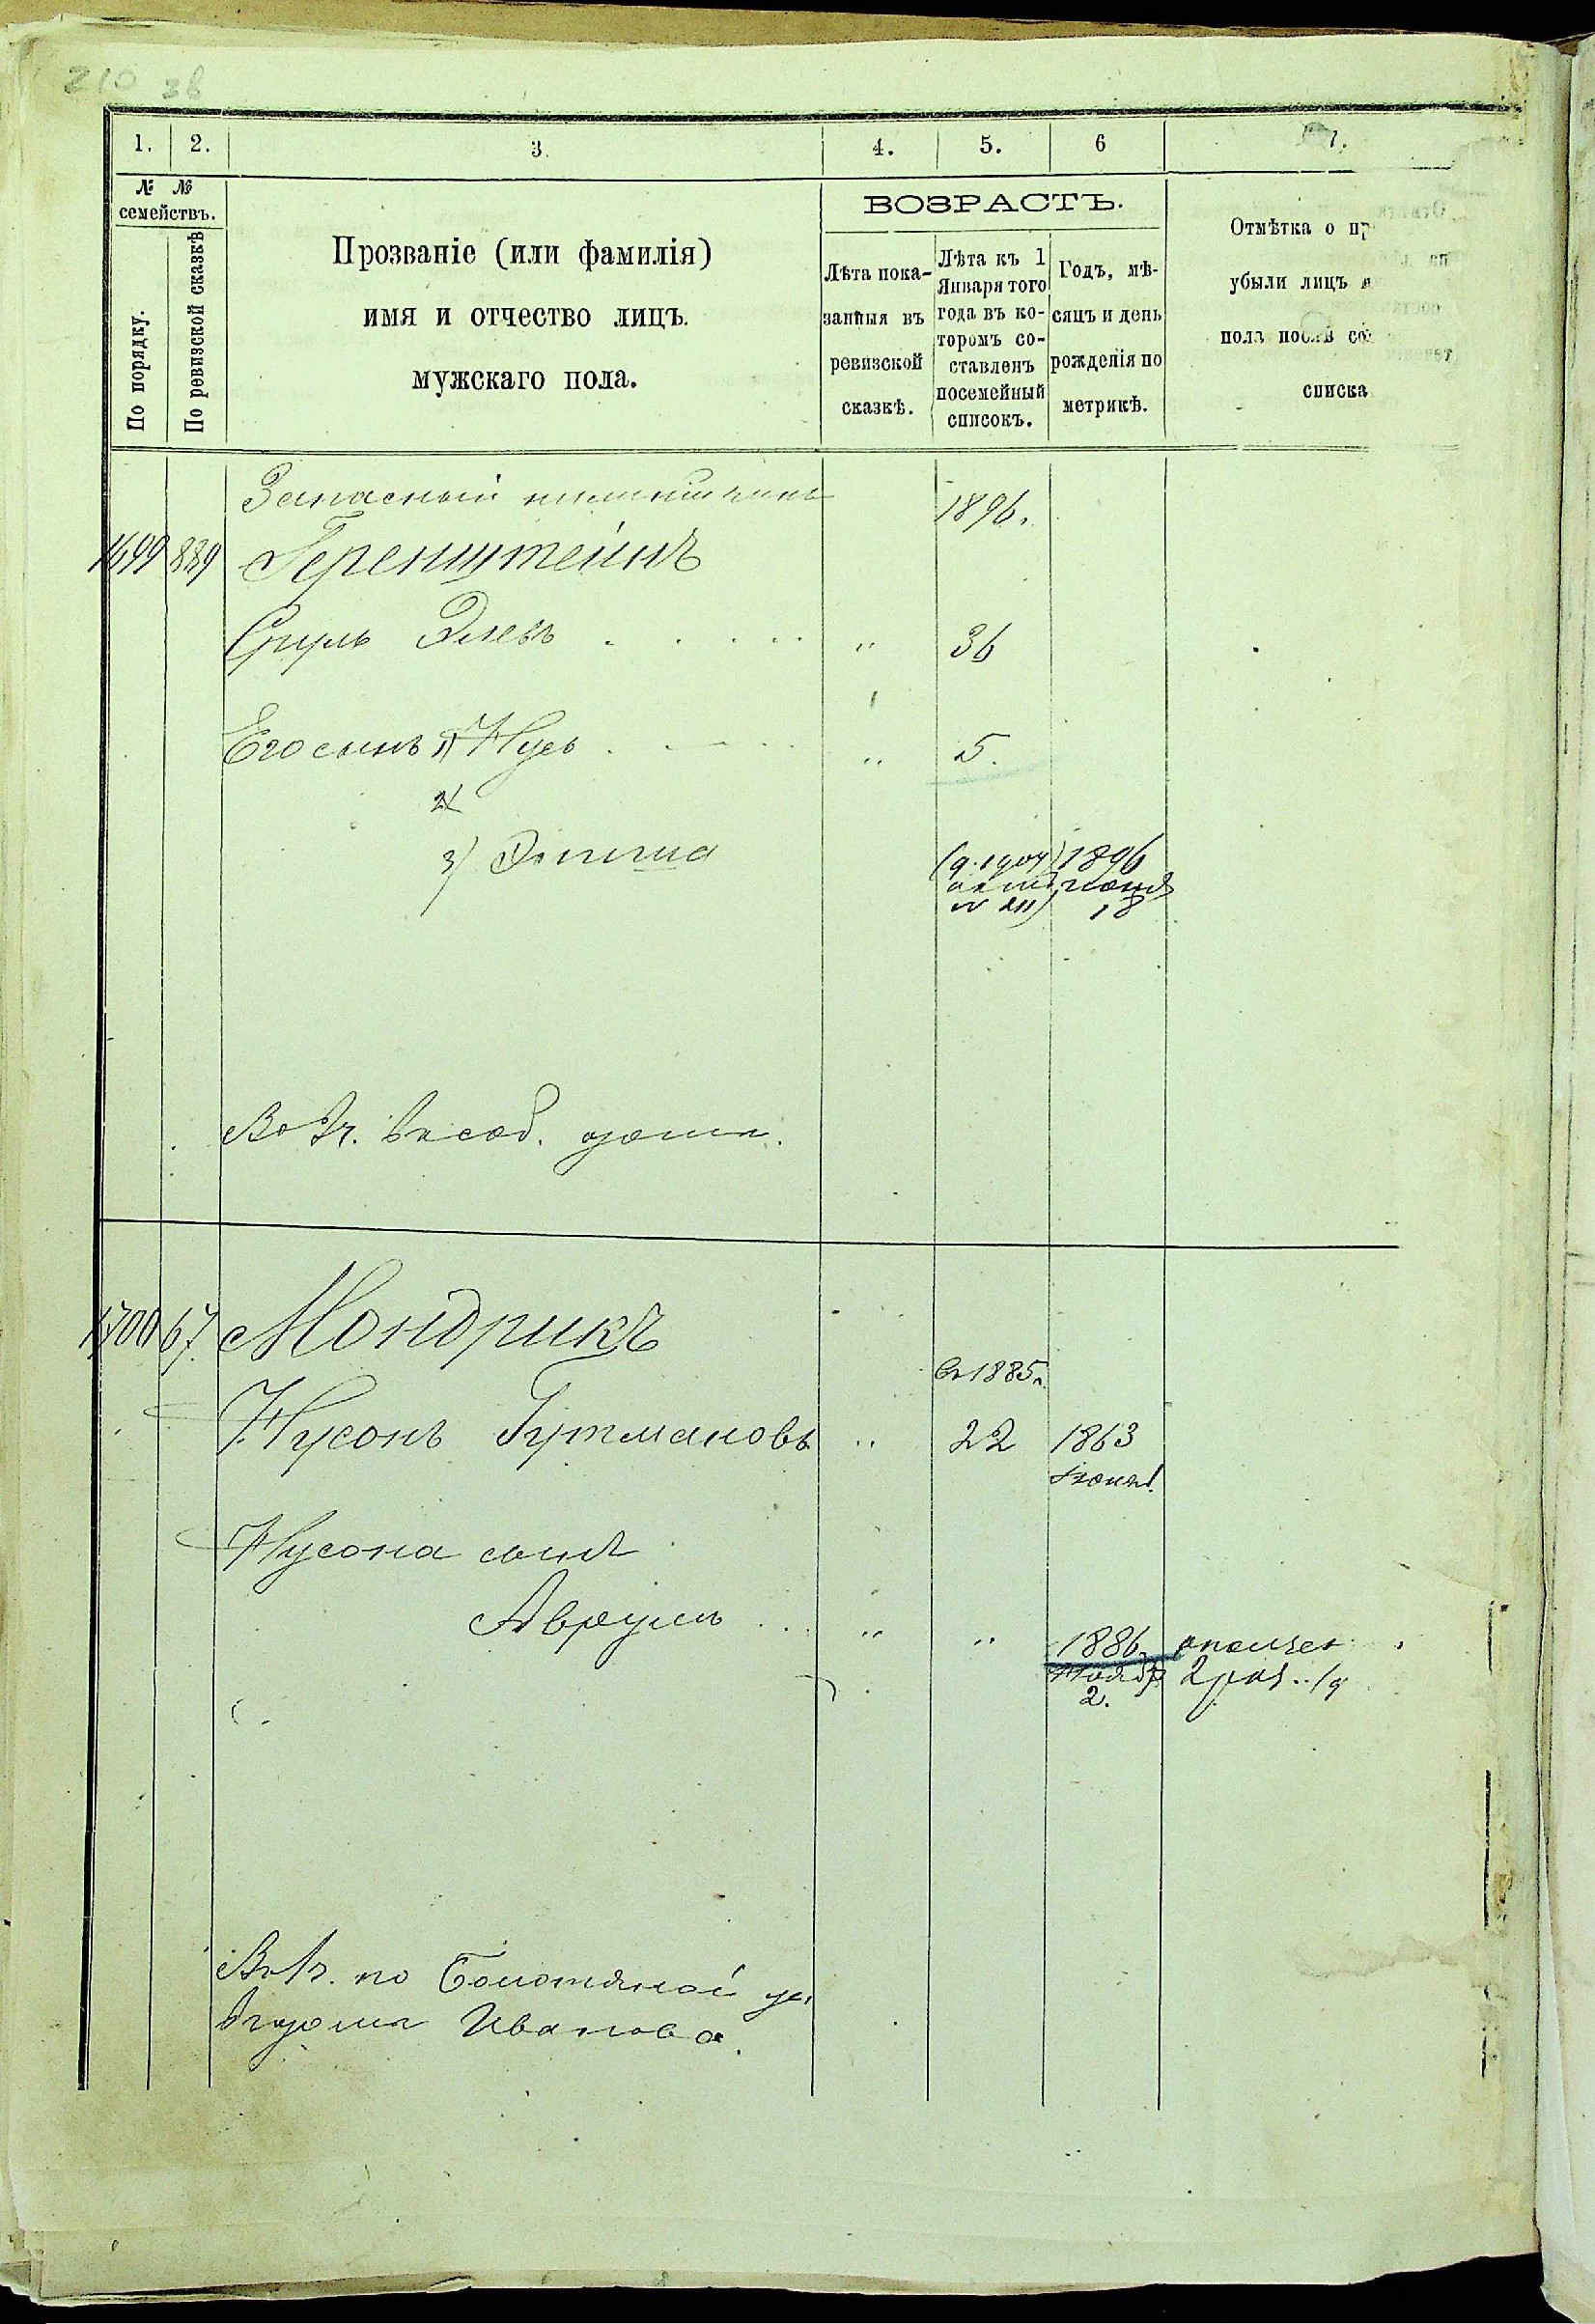 210 зв
1. 2. 3. 4. 5. 6 7.
№ № семействъ.
По порядку.
По ревизской сказкѣ
Прозваніе (или фамилія)
имя и отчество лицъ
мужскаго пола.
ВОЗРАСТЪ.
Лѣта пока-
занныя въ
ревизской
сказкѣ.
Лѣта къ 1
Января того
года въ ко-
торомъ со-
ставленъ
посемейный
списокъ.
Годъ, мѣ-
сяцъ и день
рожденія по
метрикѣ.
Отмѣтка о пр
убыли лицъ
пола послѣ со
списка
Запасный 1896.
1699 889 Геренштейнъ
Сруль Элевъ „ 36
Его сынъ 1) Нусь „ 5.
2)
3) 1896
18
Въ 2ч. въ соб. домѣ.
1700 67. Мондрикъ
въ 1885г.
Нусонъ Гутмановъ „ 22 1863
Нусона сынъ
Аврумъ „ „ 1886
Ноябр 2 раз.
2.
Въ 1ч. по Болотяной ул.
въ домѣ Иванова.